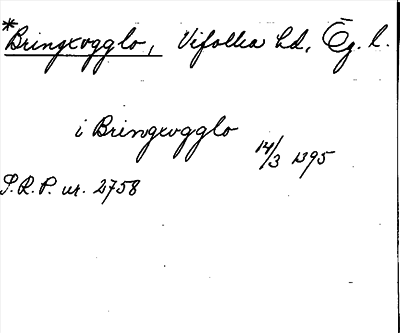 *Bringxogglo, Vifolka hd, Ög. l.
i Bringxogglo
14/3 1395
S.R.P. nr. 2758